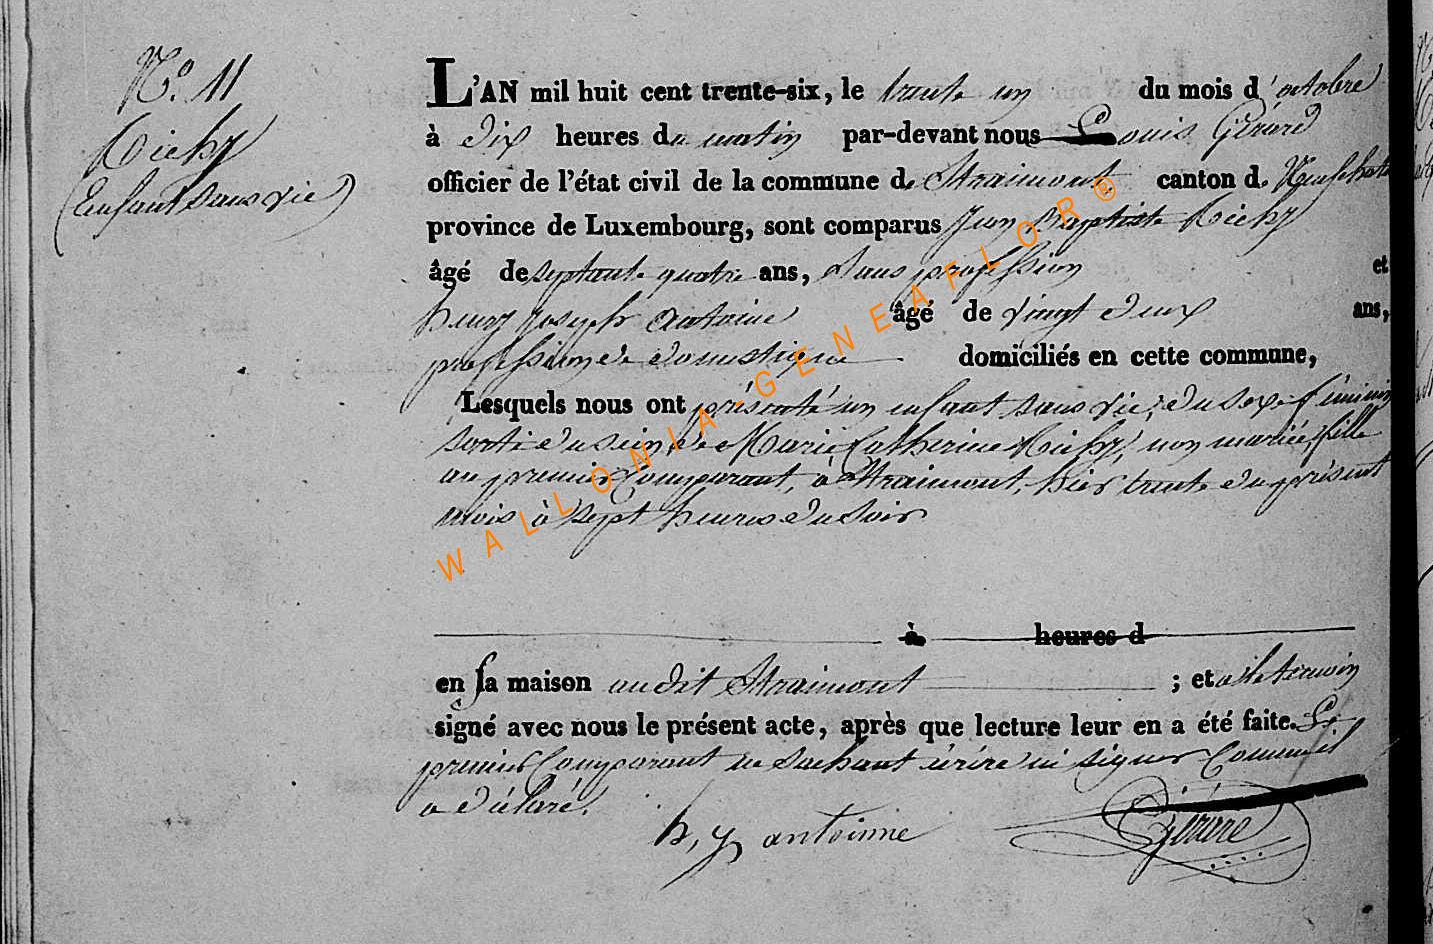 N.° 11
Michy
(Enfant sans vie)
L'AN mil huit cent trente-six, le trente un du mois d'octobre
à dix heures du matin par-devant nous Louis Gérard
officier de l'état civil de la commune de Straimont canton de Neufchate
province de Luxembourg, sont comparus Jean Baptiste Michy
âgé de septante quatre ans, sans profession et
henry joseph antoine âgé de vingt deux ans,
profession de domestique domiciliés en cette commune,
Lesquels nous ont présenté un enfant sans vie, du sexe féminin
sorti du sein de Marie Catherine Michy, non mariée, fille
au premier Comparant, à Straimont, hier trente du présent
mois à sept heures du soir
à heures d
en sa maison audit Straimont ; et a le temoin
signé avec nous le présent acte, après que lecture leur en a été faite. Le
premier Comparant ne sachant écrire ni signer Comme il
a déclaré.
h, j, antoinne Gérard
WALLONIA-GENEAFLOR®